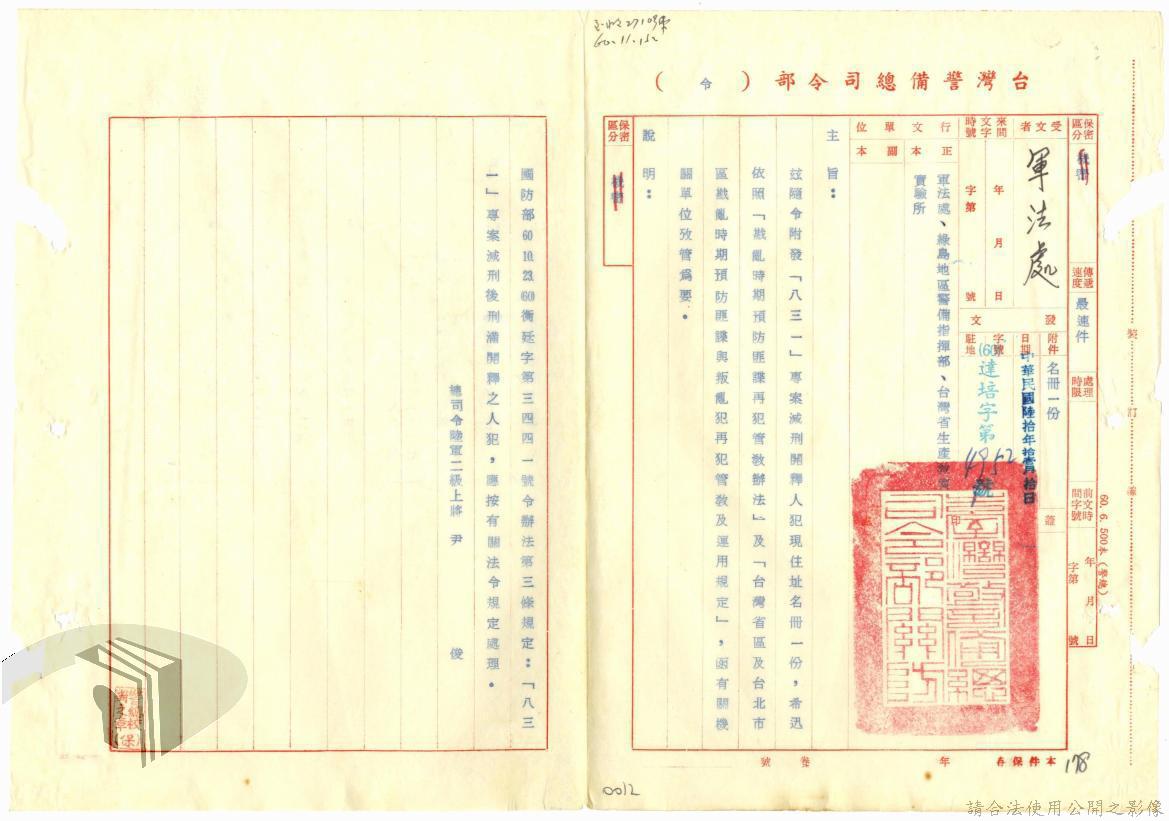 60.11.15
台灣警備總司令部（令）
保密區分
機密
傳遞速度
最速件
處理時限
前文時間字號
年 月 日
字第 號
受文者
軍法處
來文時間字號
年 月 日
字第 號
發文
附件
名冊一份
日期
中華民國陸拾年拾壹月拾日
字號
(60)達培字第4952號
駐地
蓋印
行文單位
正本
軍法處、綠島地區警備指揮部、台灣省生產教育
實驗所
副本
主旨：
玆隨令附發「八三一」專案減刑開釋人犯現住址名冊一份，希迅
依照「戡亂時期預防匪諜再犯管教辦法」及「台灣省區及台北市
區戡亂時期預防匪諜與叛亂犯再犯管教及運用規定」，函有關機
關單位攷管爲要。
說明：
保密區分
機密
本件保存 年
卷號
178
0012
60. 6. 500本（警總）
裝
訂
線
國防部60 10 23 (60)衡廷字第三四四一號令辦法第三條規定：「八三
一」專案減刑後刑滿開釋之人犯，應按有關法令規定處理。
總司令陸軍二級上將 尹 俊
請合法使用公開之影像